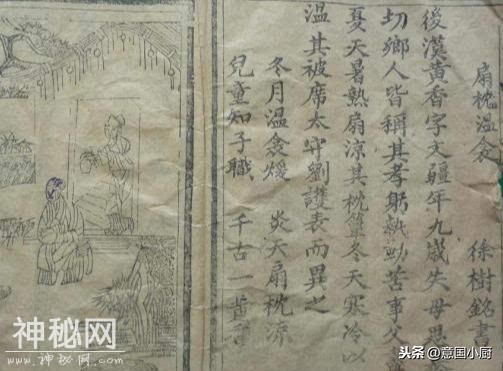 扇枕溫衾　徐樹銘書
後漢黃香字文疆年九歲失母思
切鄉人皆稱其孝躬執勤苦事父
夏天暑熱扇涼其枕簟冬天寒冷以
溫其被席太守劉護表而異之
冬月溫衾煖　炎天扇枕涼
兒童知子職　千古一黃
神秘网
WWW.神秘网.COM
头条 @意国小厨